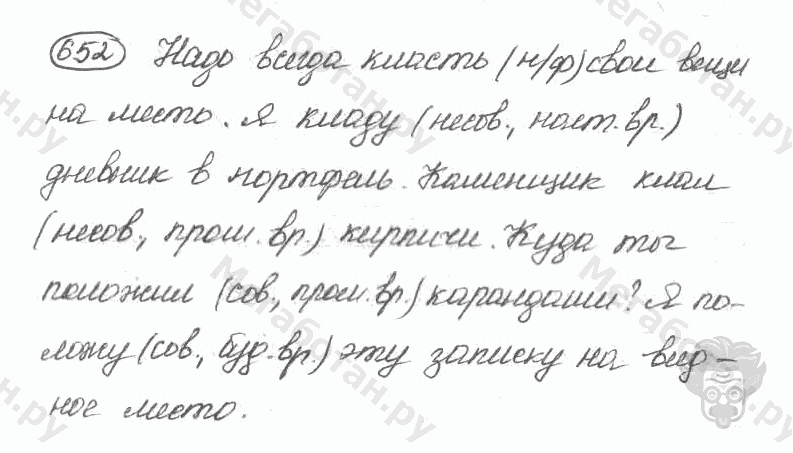 652 Надо всегда класть (н/ф) свои вещи
на место. Я кладу (несов., наст. вр.)
дневник в портфель. Каменщик клал
(несов., прош. вр.) кирпичи. Куда ты
положил (сов., прош. вр.) карандаши? Я по-
ложу (сов., буд. вр.) эту записку на вид-
ное место.
Мегаботан.ру